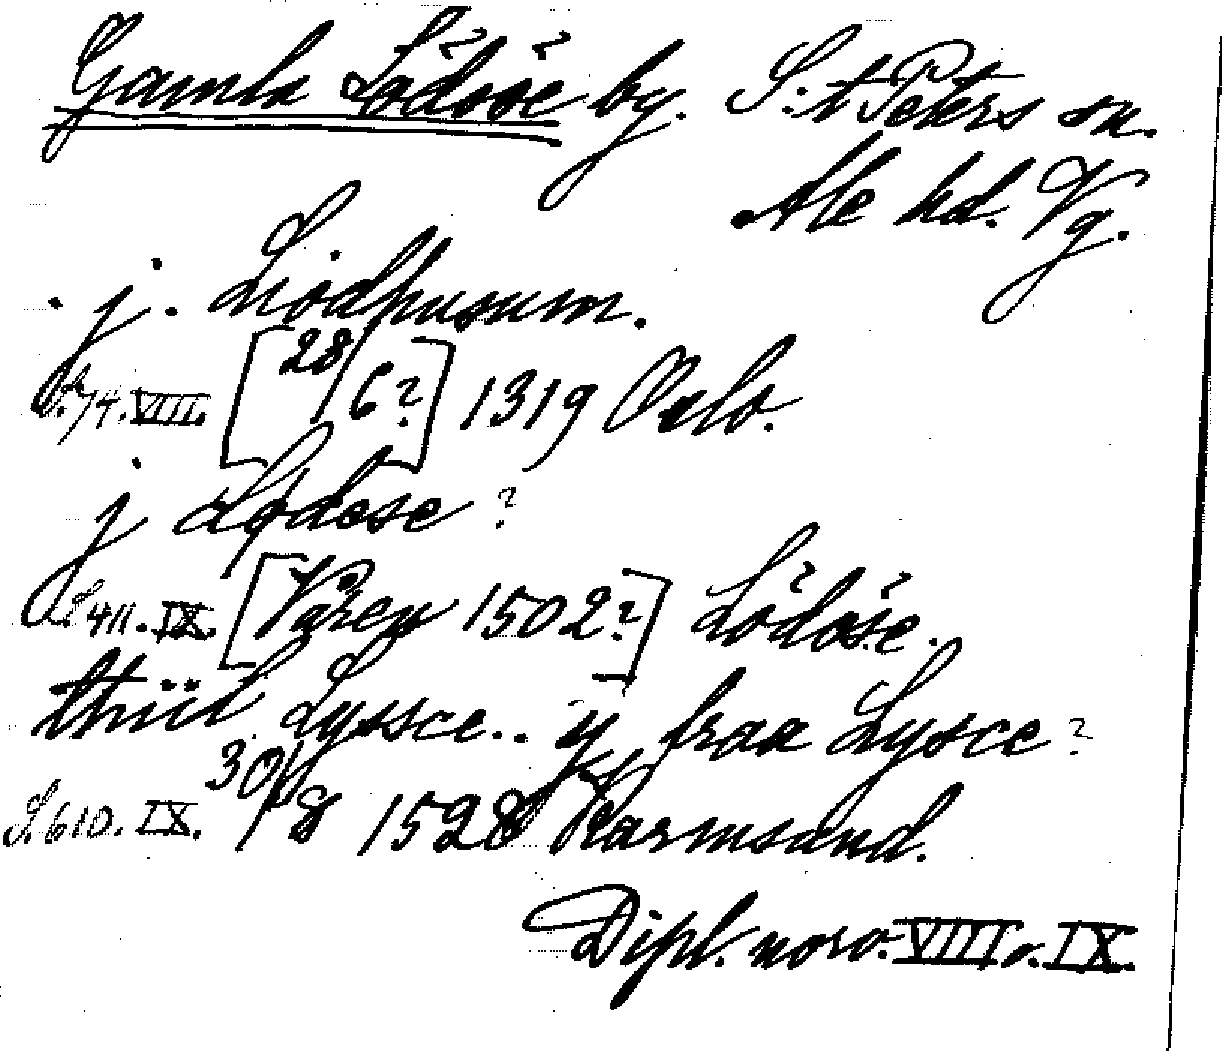 Gamla Lödöse by. S:t Peters sn.
Ale hd. Vg.
j. Liodhusum.
S. 74. VIII. [28/6?] 1319 Oslo.
j Lødese ?
S. 411. IX. [Våren 1502?] Lödöse.
thiil Lyssce.. y fraa Lysce ?
S. 610. IX. 30/8 1528 Karmsund.
Dipl. norv. VIII o. IX.